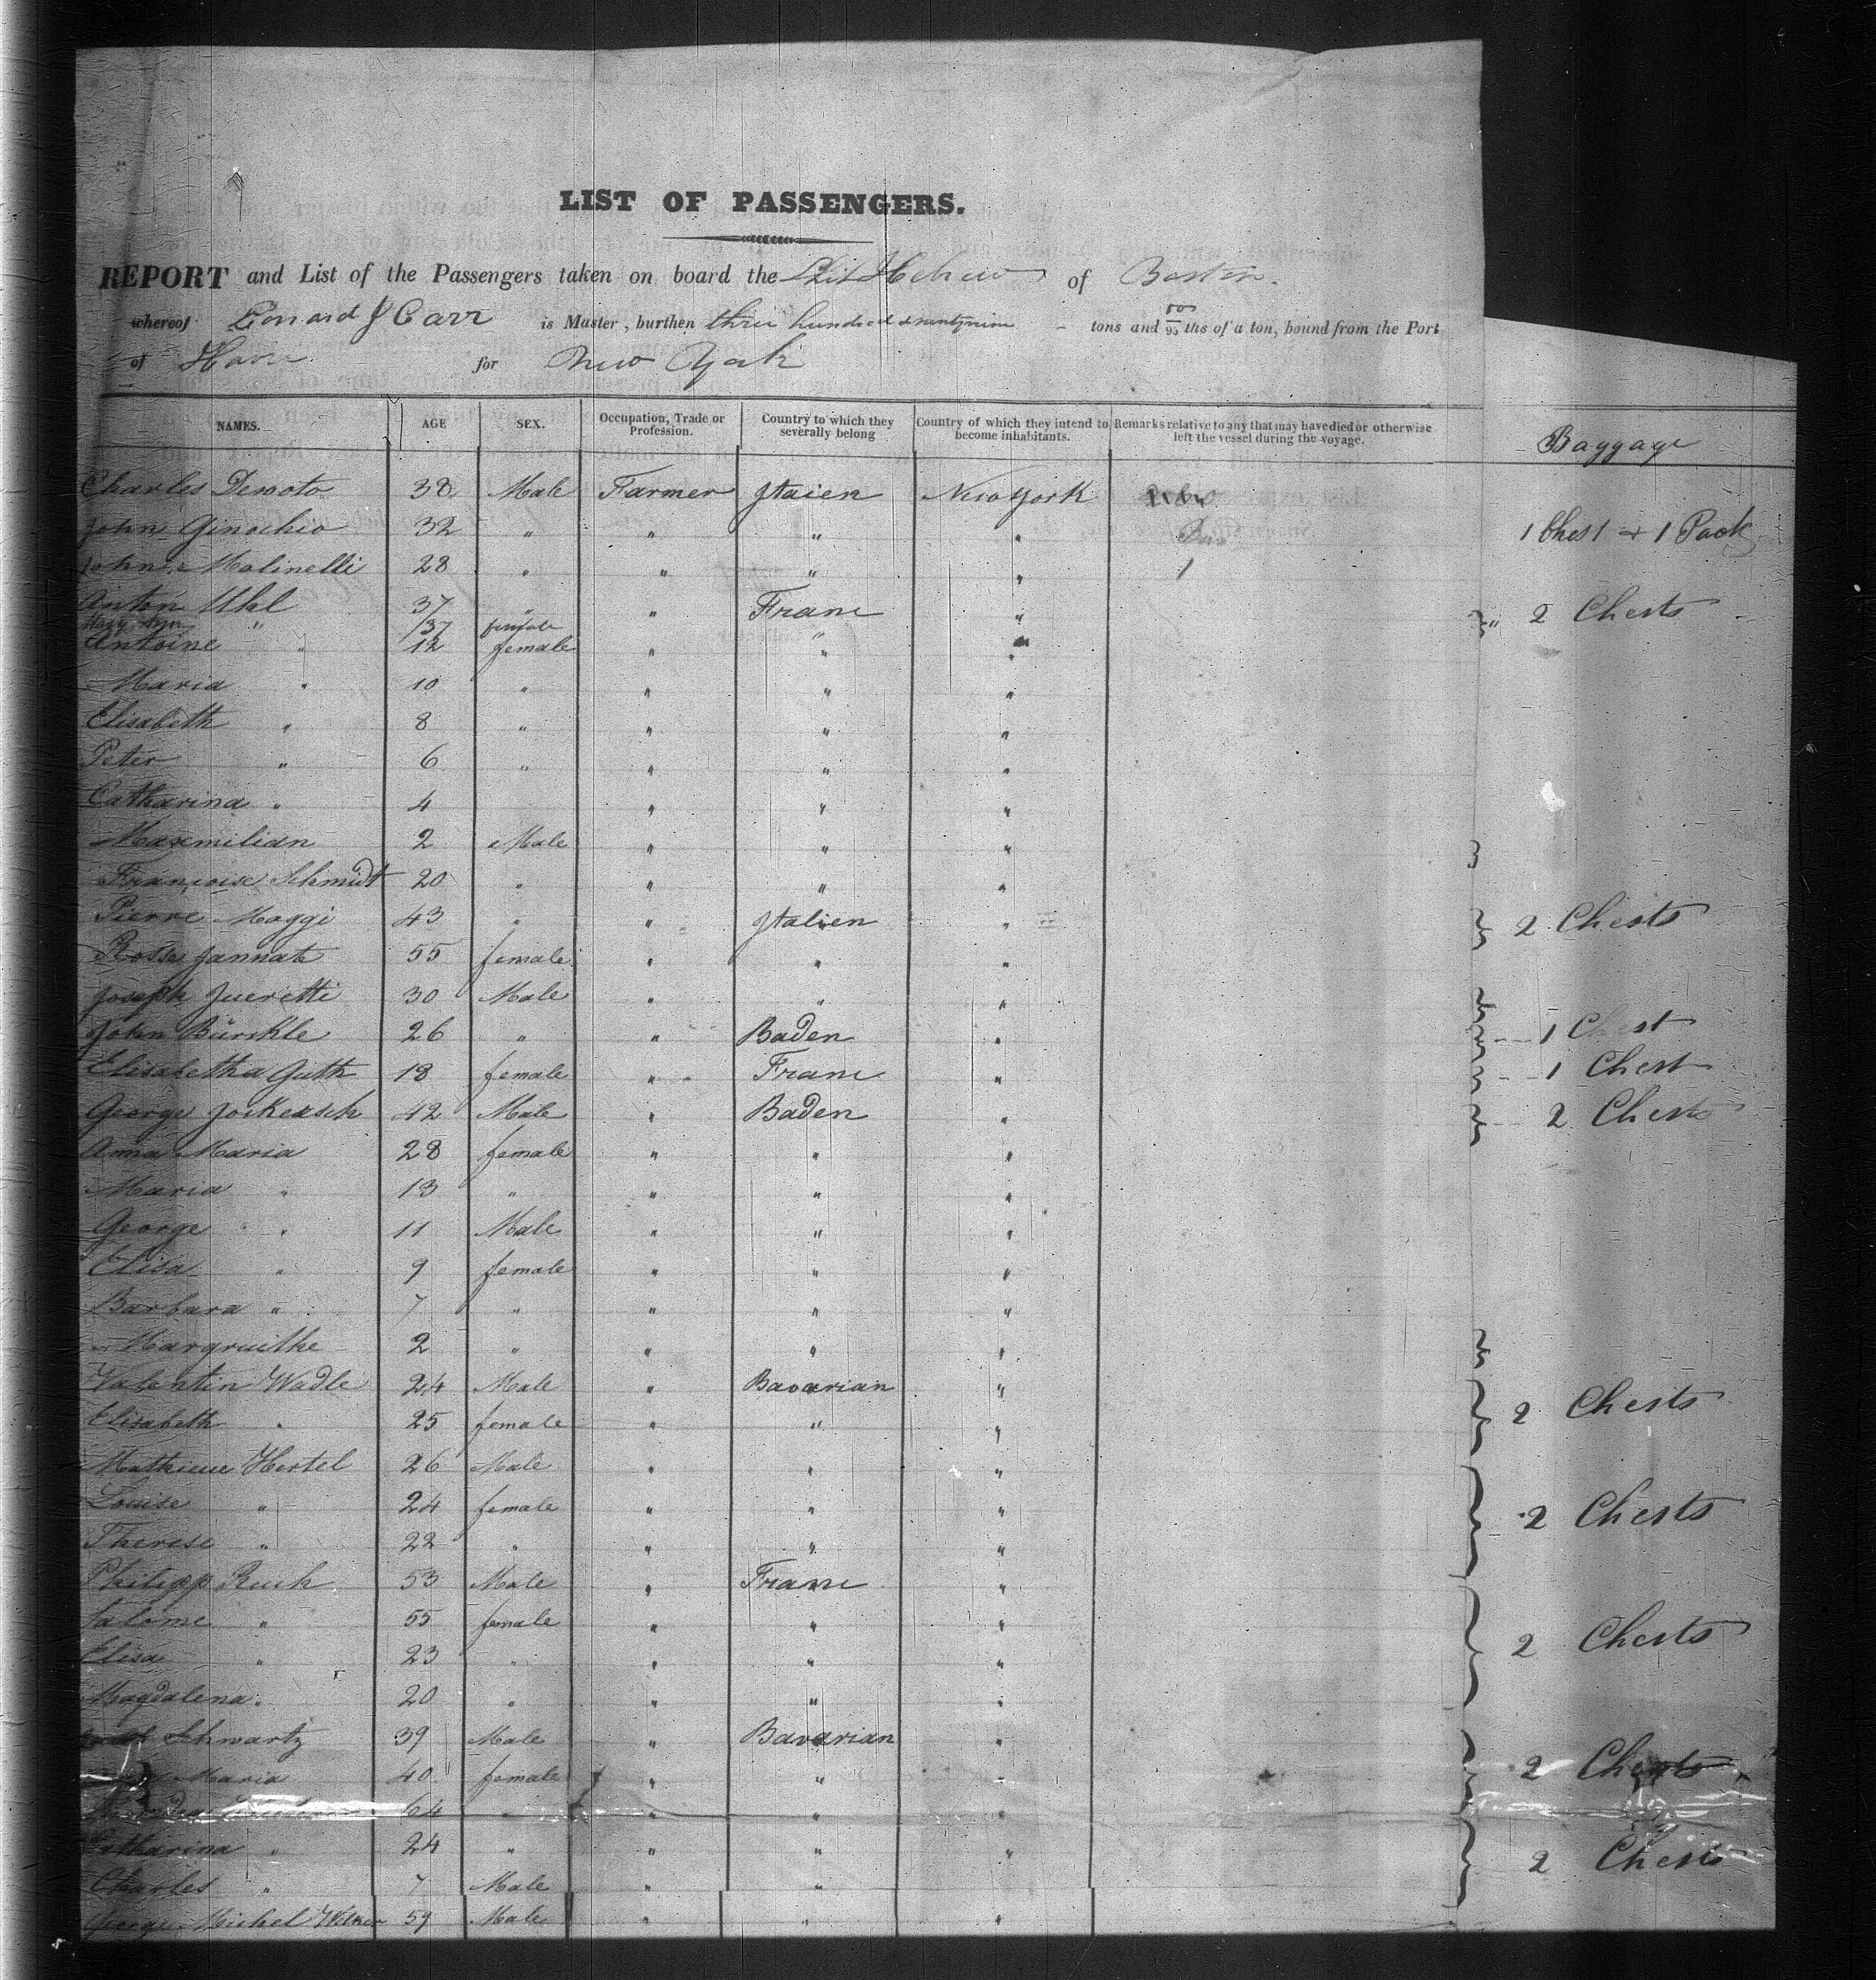 LIST OF PASSENGERS.
REPORT and List of the Passengers taken on board the Ship Hebrew of Boston.
whereof J Carr is Master, burthen three hundred tons and 00/95 ths of a ton, bound from the Port
of Havre for New York
NAMES. AGE SEX. Occupation, Trade or Profession. Country to which they severally belong Country of which they intend to become inhabitants. Remarks relative to any that may have died or otherwise left the vessel during the voyage. Baggage
Charles Devoto 38 Male Farmer Italien New York
John Ginochio 32 " " " " 1 Chest + 1 Pack
John Molinelli 28 " " " "
Anton Uhl 37 " " Franc " 2 Chests
" 37 female " "
Antoine " 12 female " " "
Maria " 10 " " " "
Elisabeth " 8 " " " "
Peter " 6 " " " "
Catharina " 4 " " "
Maxmilian 2 Male " " "
Françoise Schmidt 20 " " " "
Pierre Maggi 43 " " Italien " 2 Chests
Rosse Jannati 55 female " " "
Joseph Jueretti 30 Male " " "
John Bürckle 26 " " Baden " 1 Chest
Elisabetha Guth 18 female " Franc " 1 Chest
George Jockersch 42 Male " Baden " 2 Chests
Anna Maria 28 female " " "
Maria " 13 " " " "
George " 11 Male " " "
Elisa " 9 female " " "
Barbara " 7 " " " "
Margruithe 2 " " " "
Valentin Wadle 24 Male " Bavarian " 2 Chests
Elisabeth " 25 female " " "
Mathieue Hertel 26 Male " " "
Louise " 24 female " " " 2 Chests
Therese " 22 " " " "
Philipp Ruch 53 Male " Franc "
Salome " 55 female " " " 2 Chests
Elisa " 23 " " " "
Magdalena " 20 " " " "
Schwartz 39 Male " Bavarian "
Maria 40 female " " " 2 Chests
64 " " " "
Catharina " 24 " " " " 2 Chests
Charles " 7 Male " "
George Michel 59 Male " " "